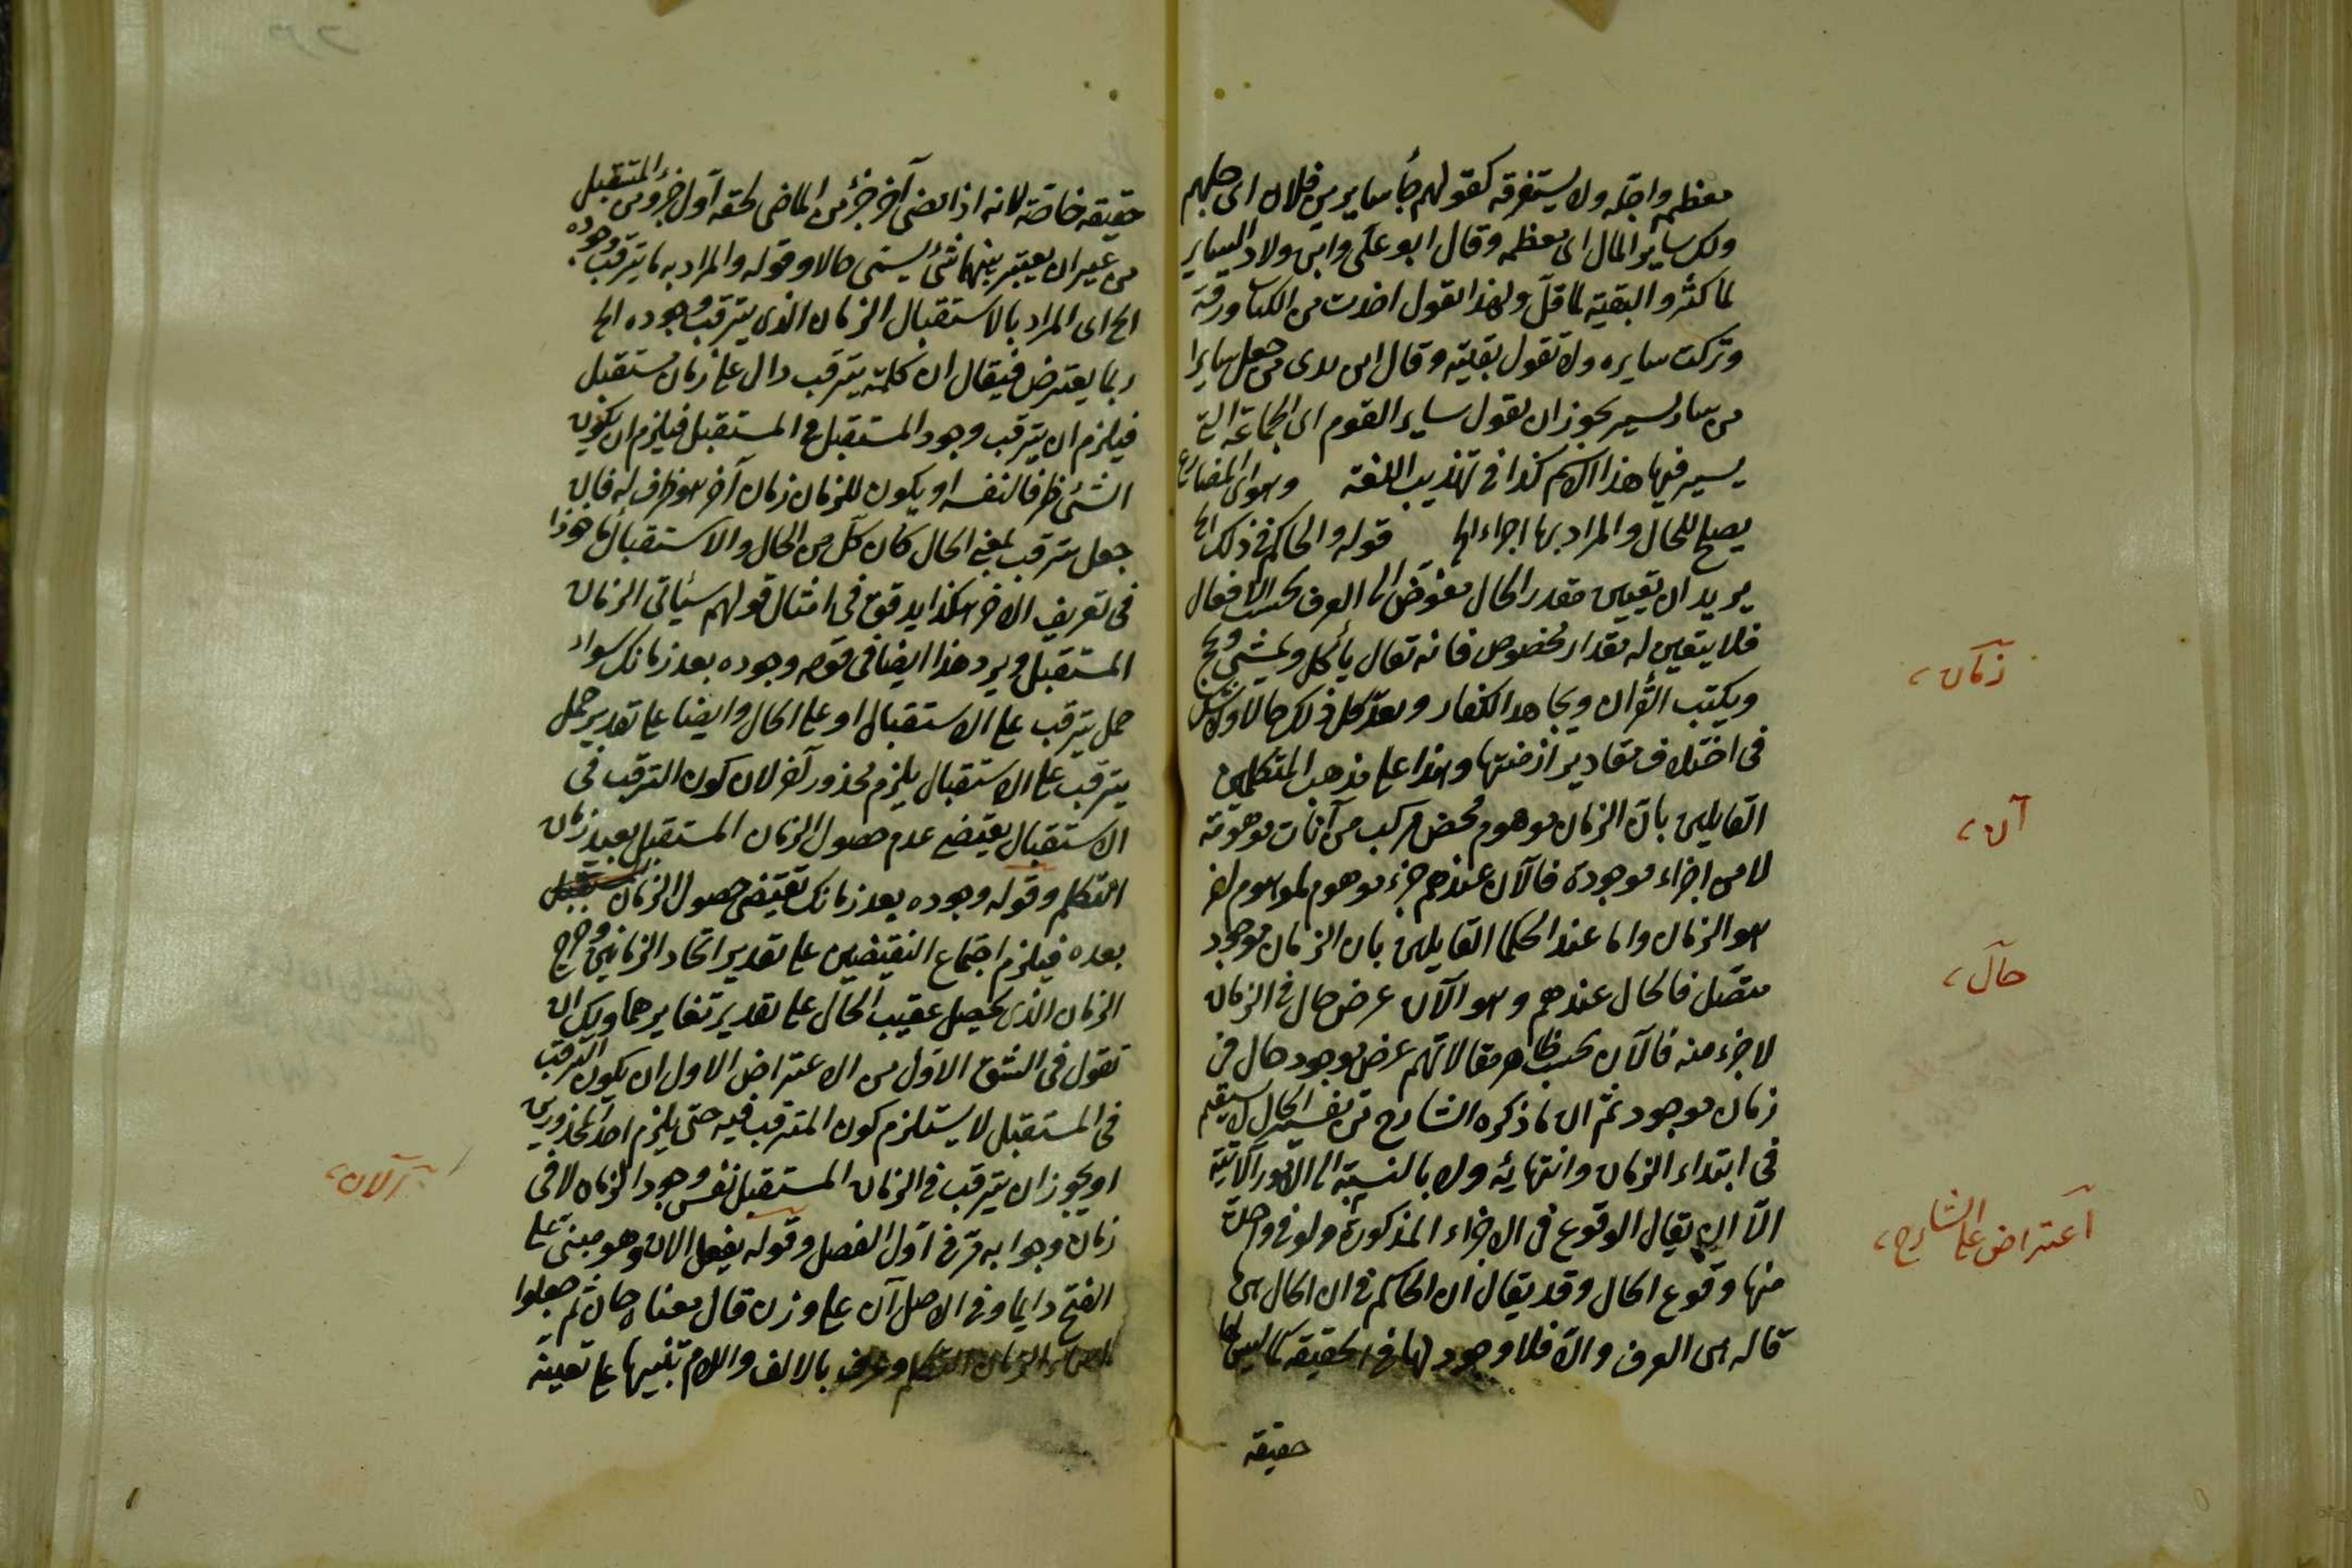 معظمه واجله ولا يستغرقه كقولهم جأ ساير بنى فلان اى جلهم
ولك ساير المال اى معظمه وقال ابو على وابن ولاد الساير
لما كثر والبقية لما قل ولهذا القول اخذت من الكتاب ورقة
وتركت سايره ولا تقول بقيته وقال ابن برى من جعل سايرا
من سار يسير يجوز ان يقول ساير القوم اى الجماعة التى
يسير فيها هذا الاسم كذا فى تهذيب اللغة وهو اى المضارع
يصلح للحال والمراد بها اجزاء الخ قوله والحاكم فى ذلك الخ
يريد ان تعيين مقدر الحال مفوض الى العرف بحسب الافعال
فلا يتعين له مقدار مخصوص فانه تقال يأكل ويمشى ويحج
ويكتب القرآن ويجاهد الكفار ويعد كل ذلك حالا ولا شك
فى اختلاف مقادير ازمنتها وهذا على مذهب المتكلمين
القايلين بان الزمان موهوم محض مركب من آنات موهومة
لا من اجزاء موجودة فالآن عندهم جزء موهوم لموهوم اخر
هو الزمان واما عند الحكما القايلين بان الزمان موجود
متصل فالحال عندهم وهو الآن عرض حال فى الزمان
لا جزء منه فالآن بحسب ظاهر مقالاتهم عرض موجود حال فى
زمان موجود ثم ان ما ذكره الشارح من تفسير الحال لا يستقيم
فى ابتداء الزمان وانتهائه ولا بالنسبة الى الامور الآنية
الا ان يقال الوقوع فى الاجزاء المذكورة ولو فى واحدة
منها وقوع الحال وقد يقال ان الحاكم فى ان الحال هى
قاله هى العرف والا فلا وجود لها فى الحقيقة كما ليس لها
حقيقة
زمان،
آن،
حال،
اعتراض على الشارح،
حقيقة خاصة لانه اذا مضى آخر جزء من الماضى لحقه اول جزء من المستقبل
من غير ان يعتبر بينهما شئ يسمى حالا وقوله والمراد به ما يترقب وجوده
الخ اى المراد بالاستقبال الزمان الذى يترقب وجوده الخ
ربما يعترض فيقال ان كلمة يترقب دال على زمان مستقبل
فيلزم ان يترقب وجود المستقبل فى المستقبل فيلزم ان يكون
الشئ ظرفا لنفسه او يكون للزمان زمان آخر هو ظرف له فان
جعل يترقب بمعنى الحال كان كل من الحال والاستقبال ماخوذا
فى تعريف الاخر هكذا يدقق فى امثال قولهم سيأتى الزمان
المستقبل ويرد هذا ايضا فى قوله وجوده بعد زمانك سواء
حمل يترقب على الاستقبال او على الحال وايضا على تقدير حمل
يترقب على الاستقبال يلزم محذور آخر لان كون الترقب فى
الاستقبال يقتضى عدم حصول الزمان المستقبل بعيد زمان
التكلم وقوله وجوده بعد زمانك تقتضى حصول الزمان المستقبل
بعده فيلزم اجتماع النقيضين على تقدير اتحاد الزمانين وخرج
الزمان الذى يحصل عقيب الحال على تقدير تغايرهما ويمكن ان
تقول فى الشق الاول من الاعتراض الاول ان يكون الترقب
فى المستقبل لا يستلزم كون المترقب فيه حتى يلزم احد المحذورين
او يجوز ان يترقب فى الزمان المستقبل نفس وجود الزمان لا فى
زمان وجوابه مر فى اول الفصل وقوله يفعل الان وهو مبنى على
الفتح دايما وفى الاصل آن على وزن قال معناه حان ثم جعلوا
الزمان التكلم وعرف بالالف واللام تنبيها على تعينه
الان،